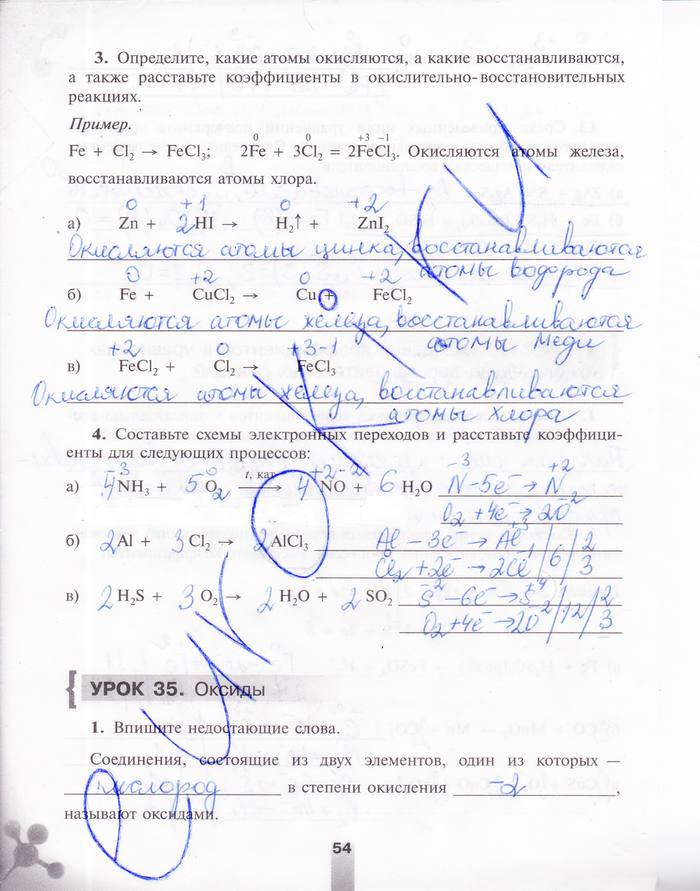 3. Определите, какие атомы окисляются, а какие восстанавливаются,
а также расставьте коэффициенты в окислительно-восстановительных
реакциях.
Пример.
0 0 +3 −1
Fe + Cl₂ → FeCl₃; 2Fe + 3Cl₂ = 2FeCl₃. Окисляются атомы железа,
восстанавливаются атомы хлора.
0 +1 0 +2
а) Zn + 2HI → H₂↑ + ZnI₂
Окисляются атомы цинка, восстанавливаются
атомы водорода
0 +2 0 +2
б) Fe + CuCl₂ → Cu + FeCl₂
Окисляются атомы железа, восстанавливаются
атомы меди
+2 0 +3 −1
в) FeCl₂ + Cl₂ → FeCl₃
Окисляются атомы железа, восстанавливаются
атомы хлора
4. Составьте схемы электронных переходов и расставьте коэффици-
енты для следующих процессов:
−3 0 +2 −2 −3 +2
а) 4NH₃ + 5O₂ t, кат → 4NO + 6H₂O N − 5ē → N
−2
O₂ + 4ē → 2O
+3
б) 2Al + 3Cl₂ → 2AlCl₃ Al − 3ē → Al 2
−1
Cl₂ + 2ē → 2Cl /6/ 3
−2 +4
в) 2H₂S + 3O₂ → 2H₂O + 2SO₂ S − 6ē → S 2
O₂ + 4ē → 2O /12/ 3
УРОК 35. Оксиды
1. Впишите недостающие слова.
Соединения, состоящие из двух элементов, один из которых —
кислород в степени окисления −2,
называют оксидами.
54